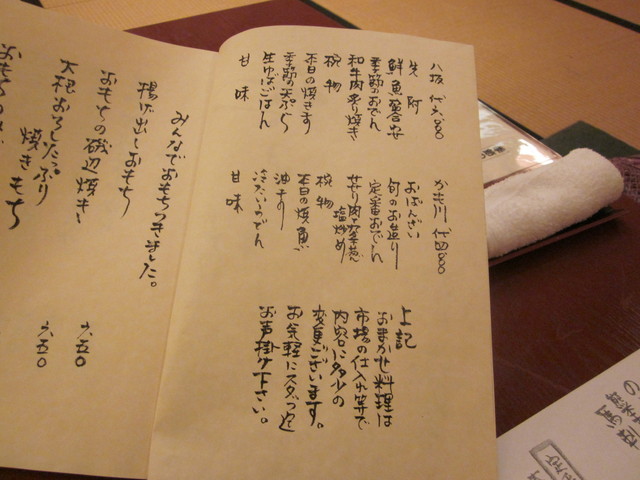 八坂 代六、八〇〇
先附
鮮魚
季節のおでん
和牛肉炙り焼き
焼物
本日の焼き
季節の天ぷら
生ゆばごはん
甘味
かも川 代四、八〇〇
おばんざい
旬のお造り
定番おでん
塩炒め
焼物
本日の焼魚
油
冷たいおでん
甘味
上記
おまかせ料理は
市場の仕入れ等で
内容に多少の
変更ございます。
お気軽にスタッフ迄
お声掛け下さい。
みんなでおもちつきました。
揚げ出しおもち
おもちの磯辺焼き
六五〇
大根おろしたっぷり
焼きもち
六五〇